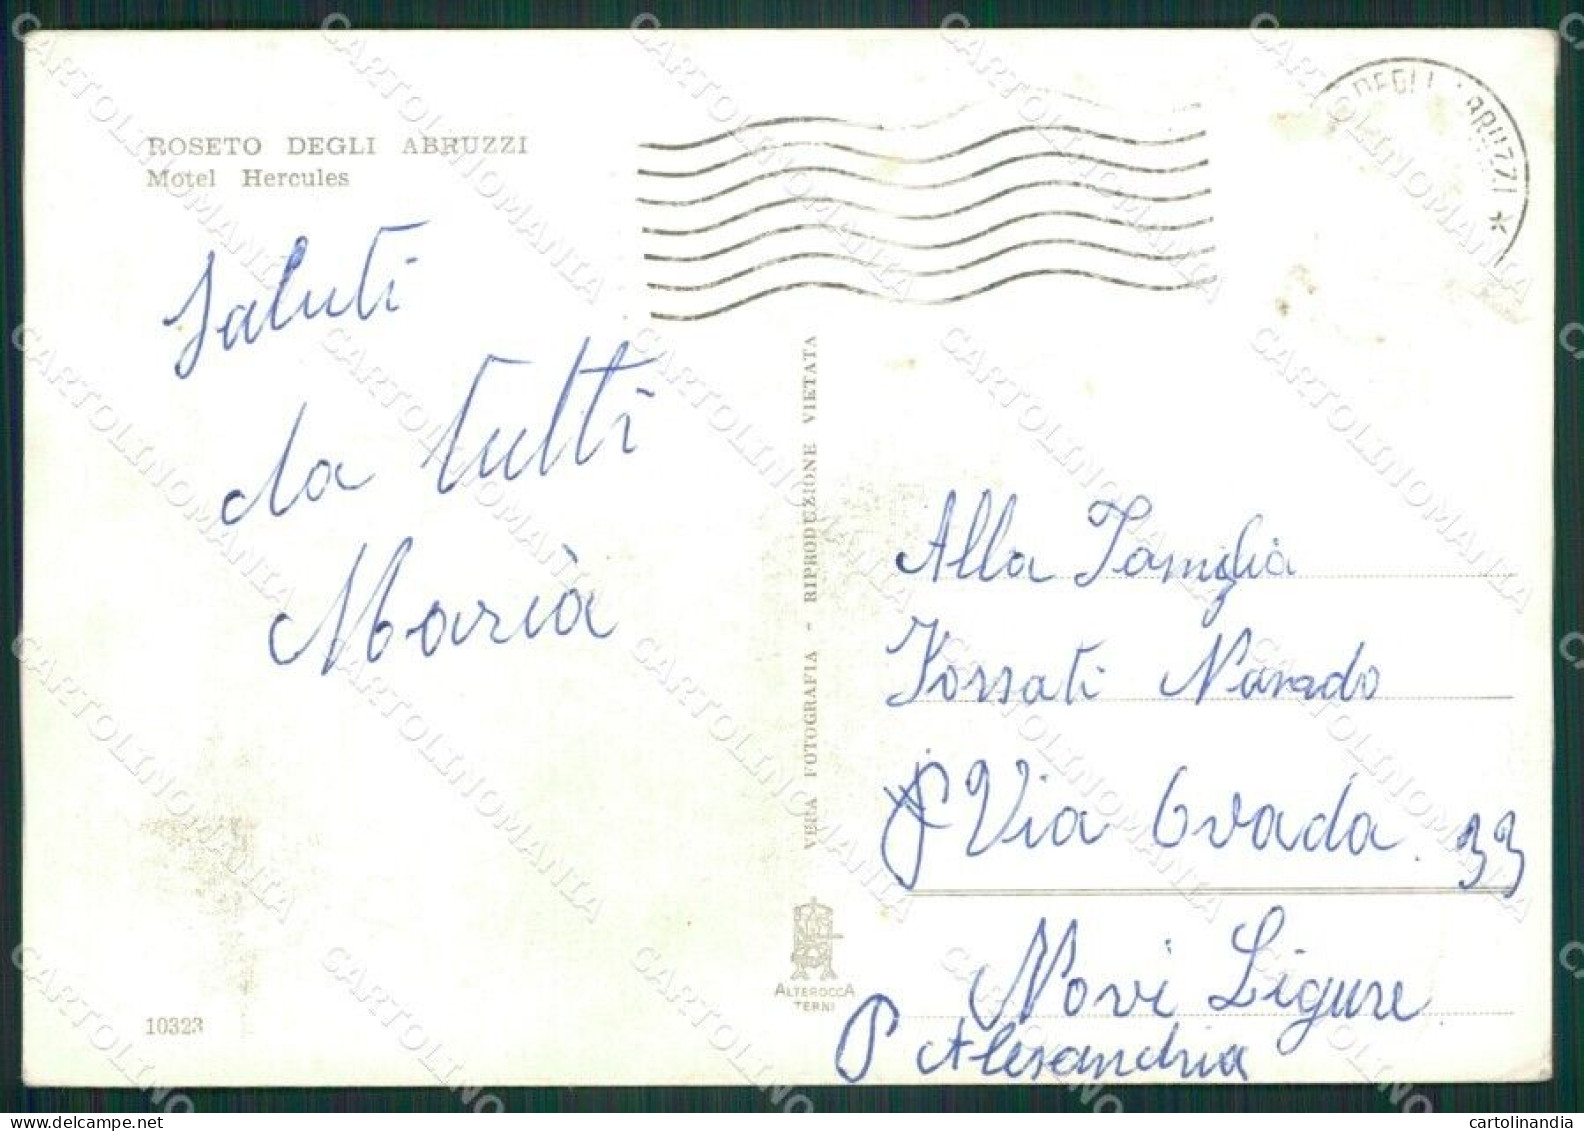 ROSETO DEGLI ABRUZZI
Motel Hercules
DEGLI ABRUZZI *
Saluti
da tutti
Maria
VERA FOTOGRAFIA - RIPRODUZIONE VIETATA
Alla Famiglia
Via Ovada. 33
Novi Ligure
P Alesandria
ALTEROCCA
TERNI
10323
CARTOLINOMANIA
cartolinandia